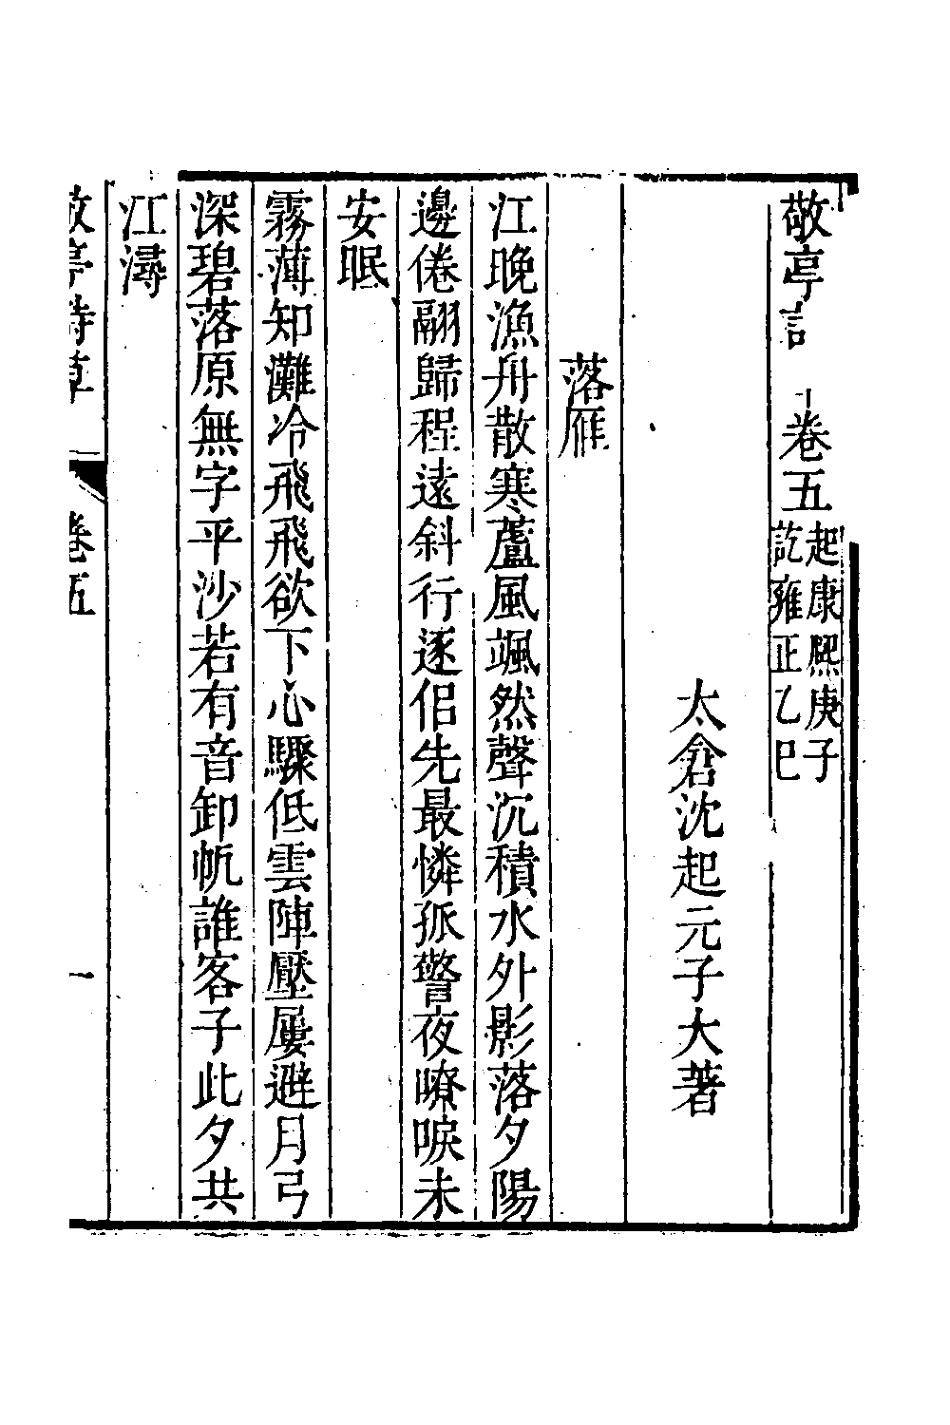 敬亭詩　卷五起康熙庚子
訖雍正乙巳
太倉沈起元子大著
落雁
江晚漁舟散寒蘆風颯然聲沉積水外影落夕陽
邊倦翮歸程遠斜行逐侶先最憐孤警夜嘹唳未
安眠
霧薄知灘冷飛飛欲下心驟低雲陣壓屢避月弓
深碧落原無字平沙若有音卸帆誰客子此夕共
江潯
敬亭詩草　卷五　一